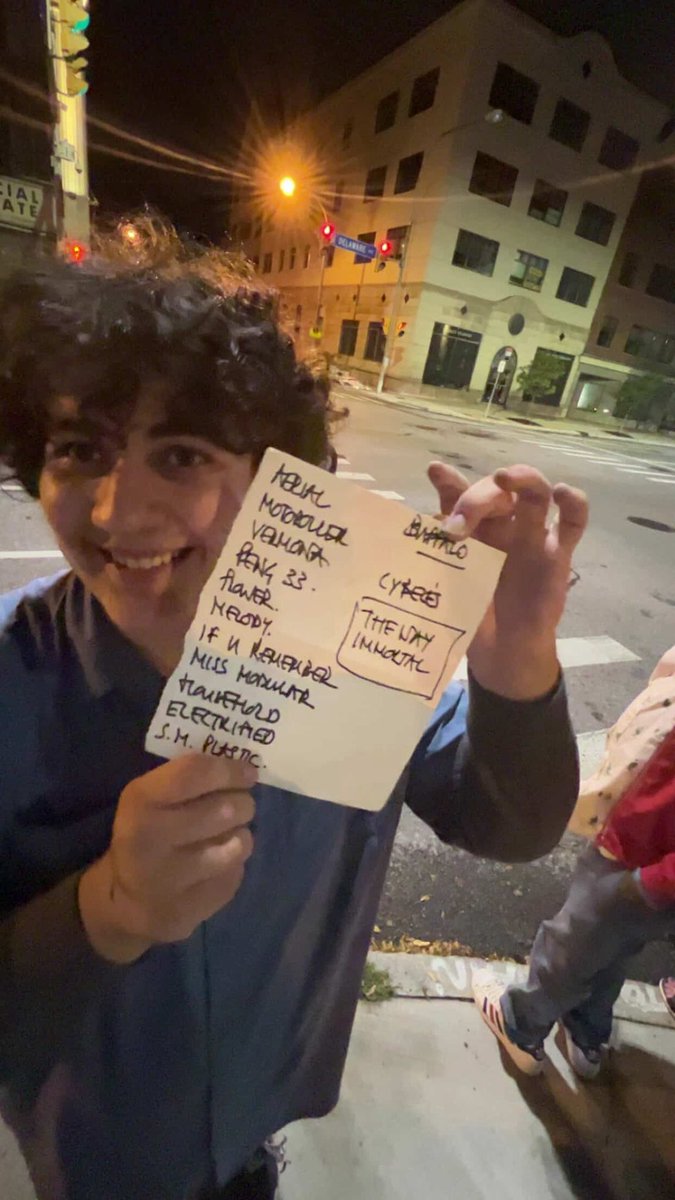 CIAL
ATE
DELAWARE
AERIAL
MOTOROLLER
VERMONA
PENG 33.
FLOWER.
MELODY.
IF U REMEMBER
MISS MODULAR
HOUSEHOLD
ELECTRIFIED
S.M. PLASTIC.
BUFFALO
CYBELE'S
THE WAY
IMMORTAL